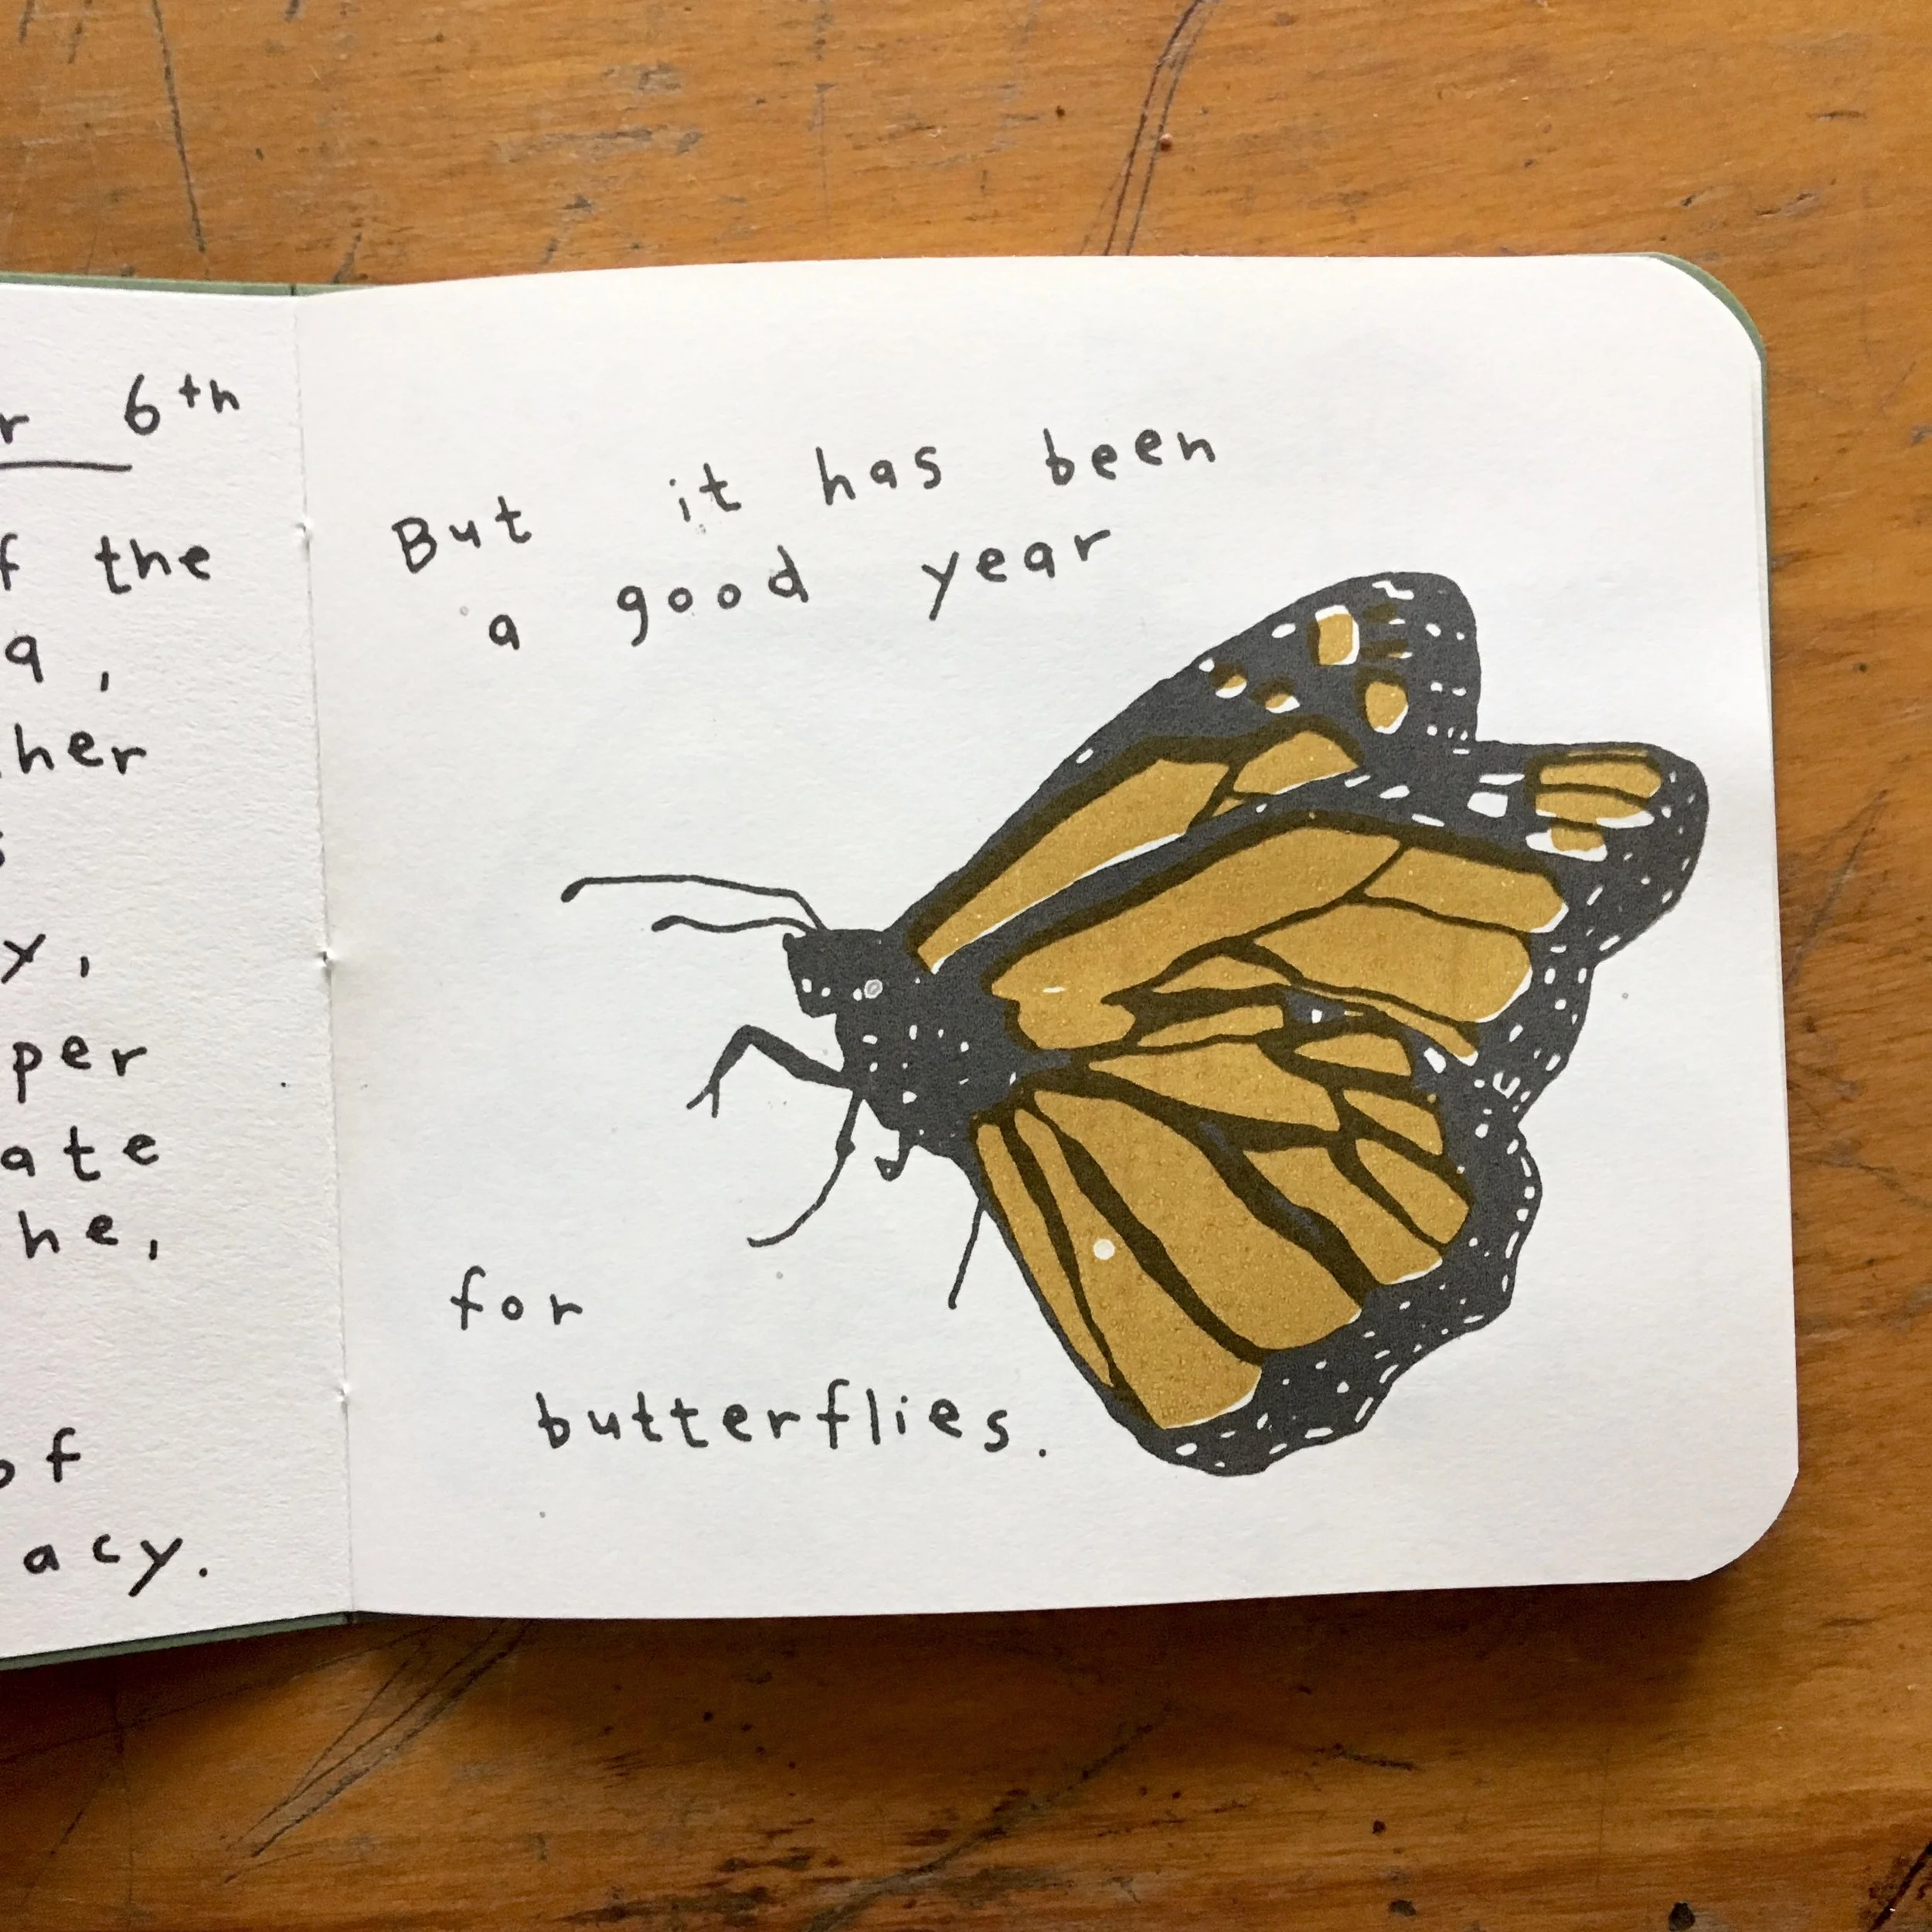 6th
the
,
her
,
per
ate
he,
of
acy.
But it has been
a good year
for
butterflies.